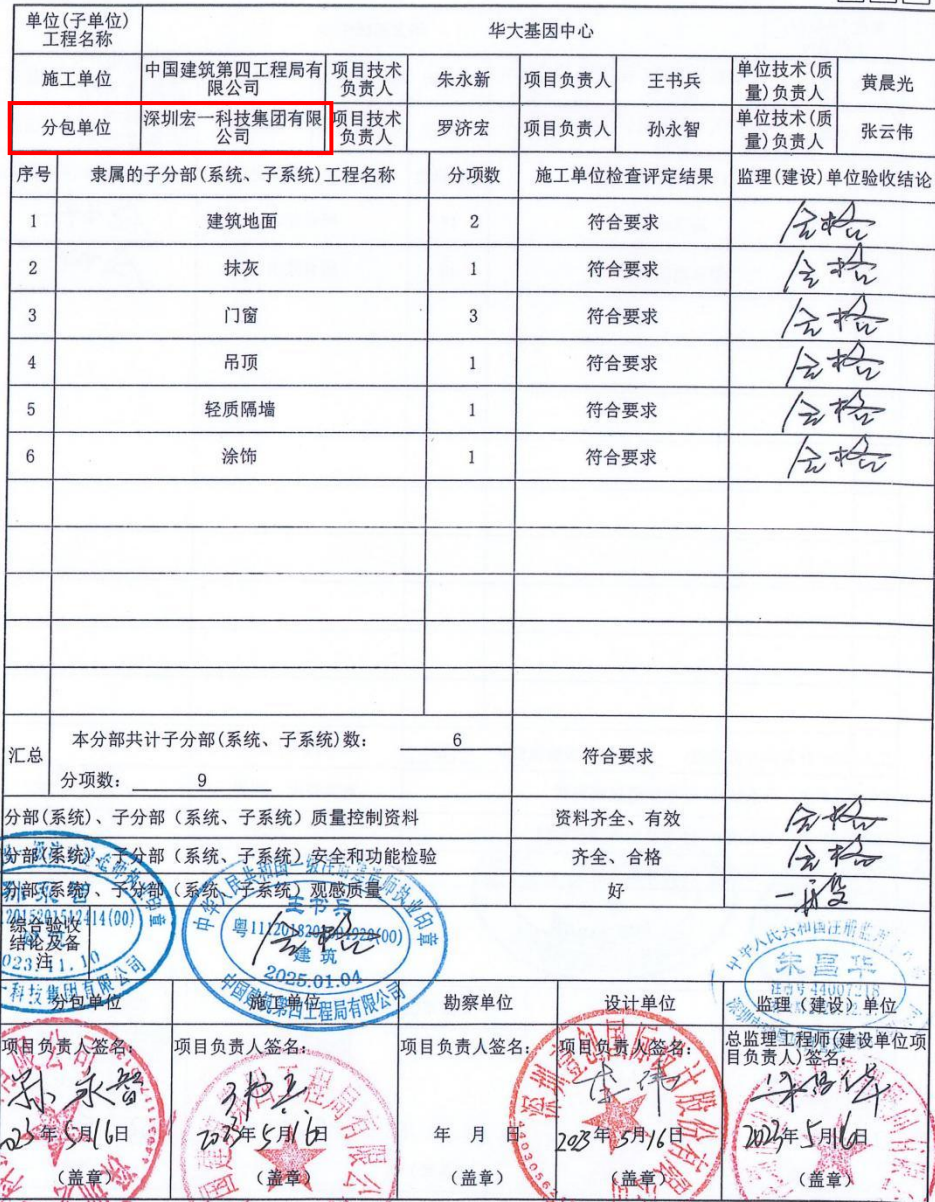 单位(子单位)
工程名称
华大基因中心
施工单位
中国建筑第四工程局有
限公司
项目技术
负责人
朱永新
项目负责人
王书兵
单位技术(质
量)负责人
黄晨光
分包单位
深圳宏一科技集团有限
公司
项目技术
负责人
罗济宏
项目负责人
孙永智
单位技术(质
量)负责人
张云伟
序号 隶属的子分部(系统、子系统)工程名称 分项数 施工单位检查评定结果 监理(建设)单位验收结论
1 建筑地面 2 符合要求 合格
2 抹灰 1 符合要求 合格
3 门窗 3 符合要求 合格
4 吊顶 1 符合要求 合格
5 轻质隔墙 1 符合要求 合格
6 涂饰 1 符合要求 合格
汇总
本分部共计子分部(系统、子系统)数: 6
分项数: 9
符合要求
分部(系统)、子分部(系统、子系统)质量控制资料 资料齐全、有效 合格
分部(系统)、子分部(系统、子系统)安全和功能检验 齐全、合格 合格
分部(系统)、子分部(系统、子系统)观感质量 好 一般
综合验收
结论及备
注
合格
中华人民共和国一级注册建造师执业印章
王书兵
建筑
2025.01.04
中国建筑第四工程局有限公司
朱昌华
注册号 44007218
分包单位 施工单位 勘察单位 设计单位 监理(建设)单位
项目负责人签名:
孙永智
2023年5月16日
(盖章)
项目负责人签名:
2023年5月16日
(盖章)
项目负责人签名:
年 月 日
(盖章)
项目负责人签名:
2023年5月16日
(盖章)
总监理工程师(建设单位项
目负责人)签名:
2023年5月16日
(盖章)